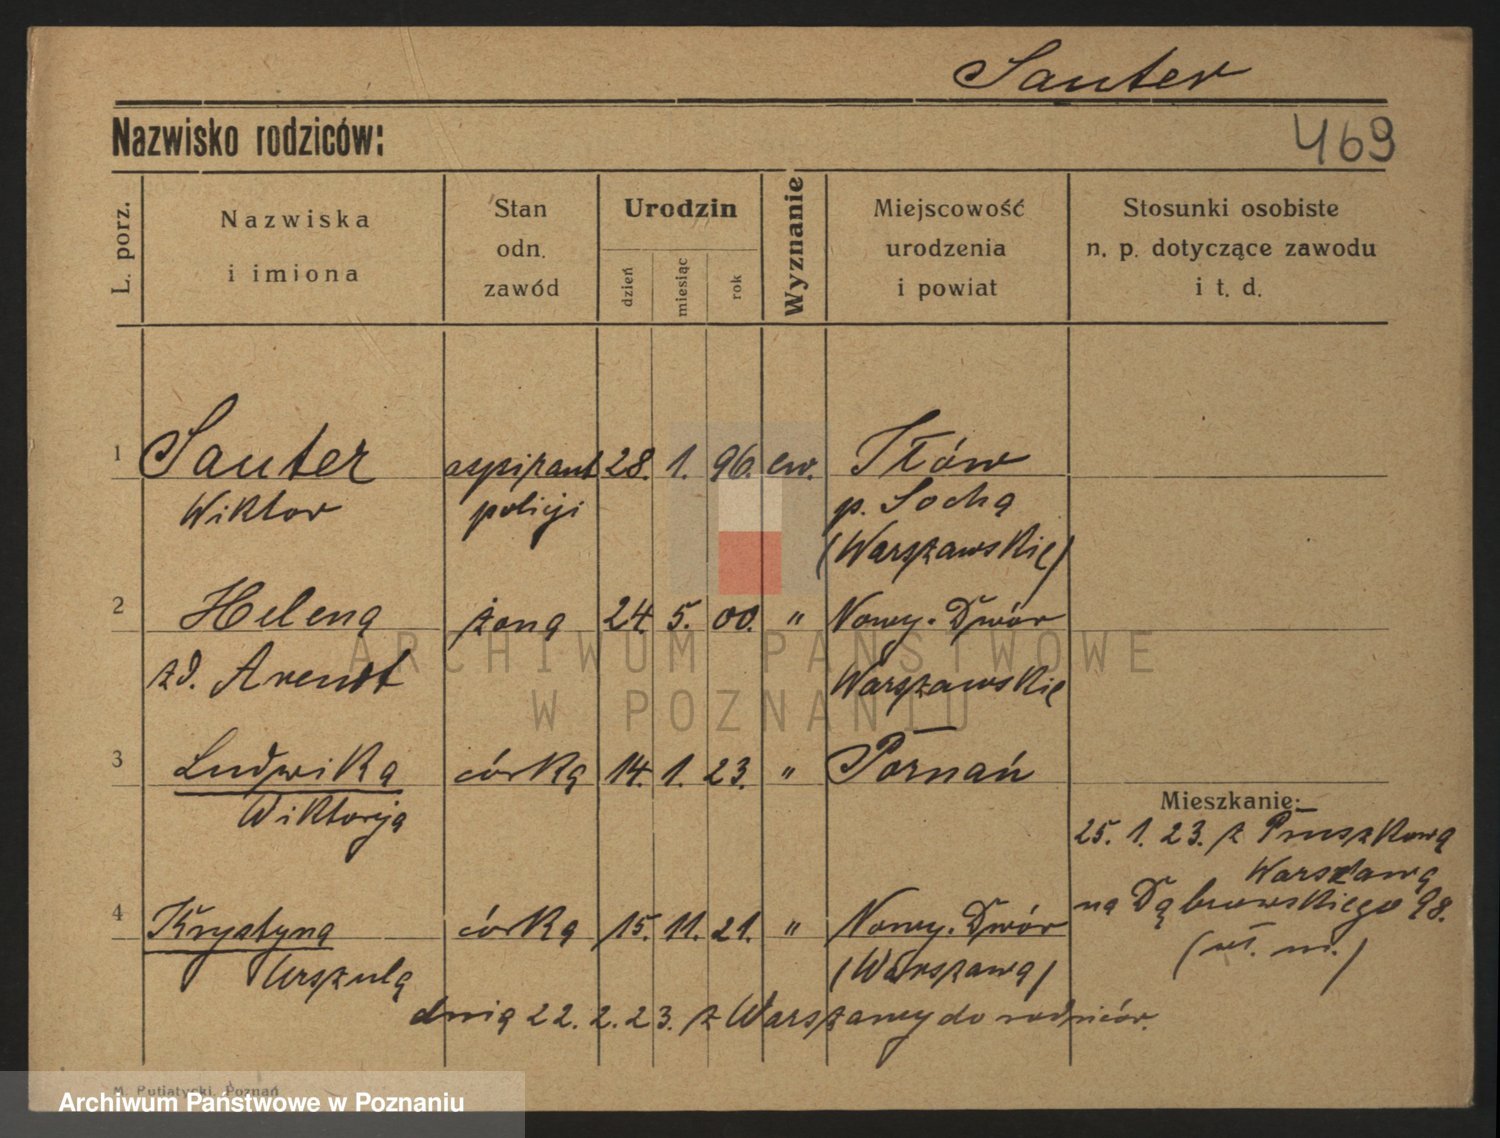 Sauter
Nazwisko rodziców:
469
L. porz.
Nazwiska
i imiona
Stan
odn.
zawód
Urodzin
dzień
miesiąc
rok
Wyznanie
Miejscowość
urodzenia
i powiat
Stosunki osobiste
n. p. dotyczące zawodu
i t. d.
1 Sauter aspirant 28. 1. 96. ew. Iłów
Wiktor policji p. Socha
(Warszawskie)
2 Helena żona 24. 5. 00. " Nowy-Dwór
zd. Arendt Warszawskie
3 Ludwika córka 14. 1. 23. " Poznań
Wiktorja
Mieszkanie:
25. 1. 23. z Pruszkowa
Warszawa
na Dąbrowskiego 98.
(wł. m.)
4 Krystyna córka 15. 11. 21. " Nowy-Dwór
Urszula (Warszawa)
dnia 22. 2. 23. z Warszawy do rodziców.
M. Putiatycki, Poznań
ARCHIWUM PAŃSTWOWE
W POZNANIU
Archiwum Państwowe w Poznaniu